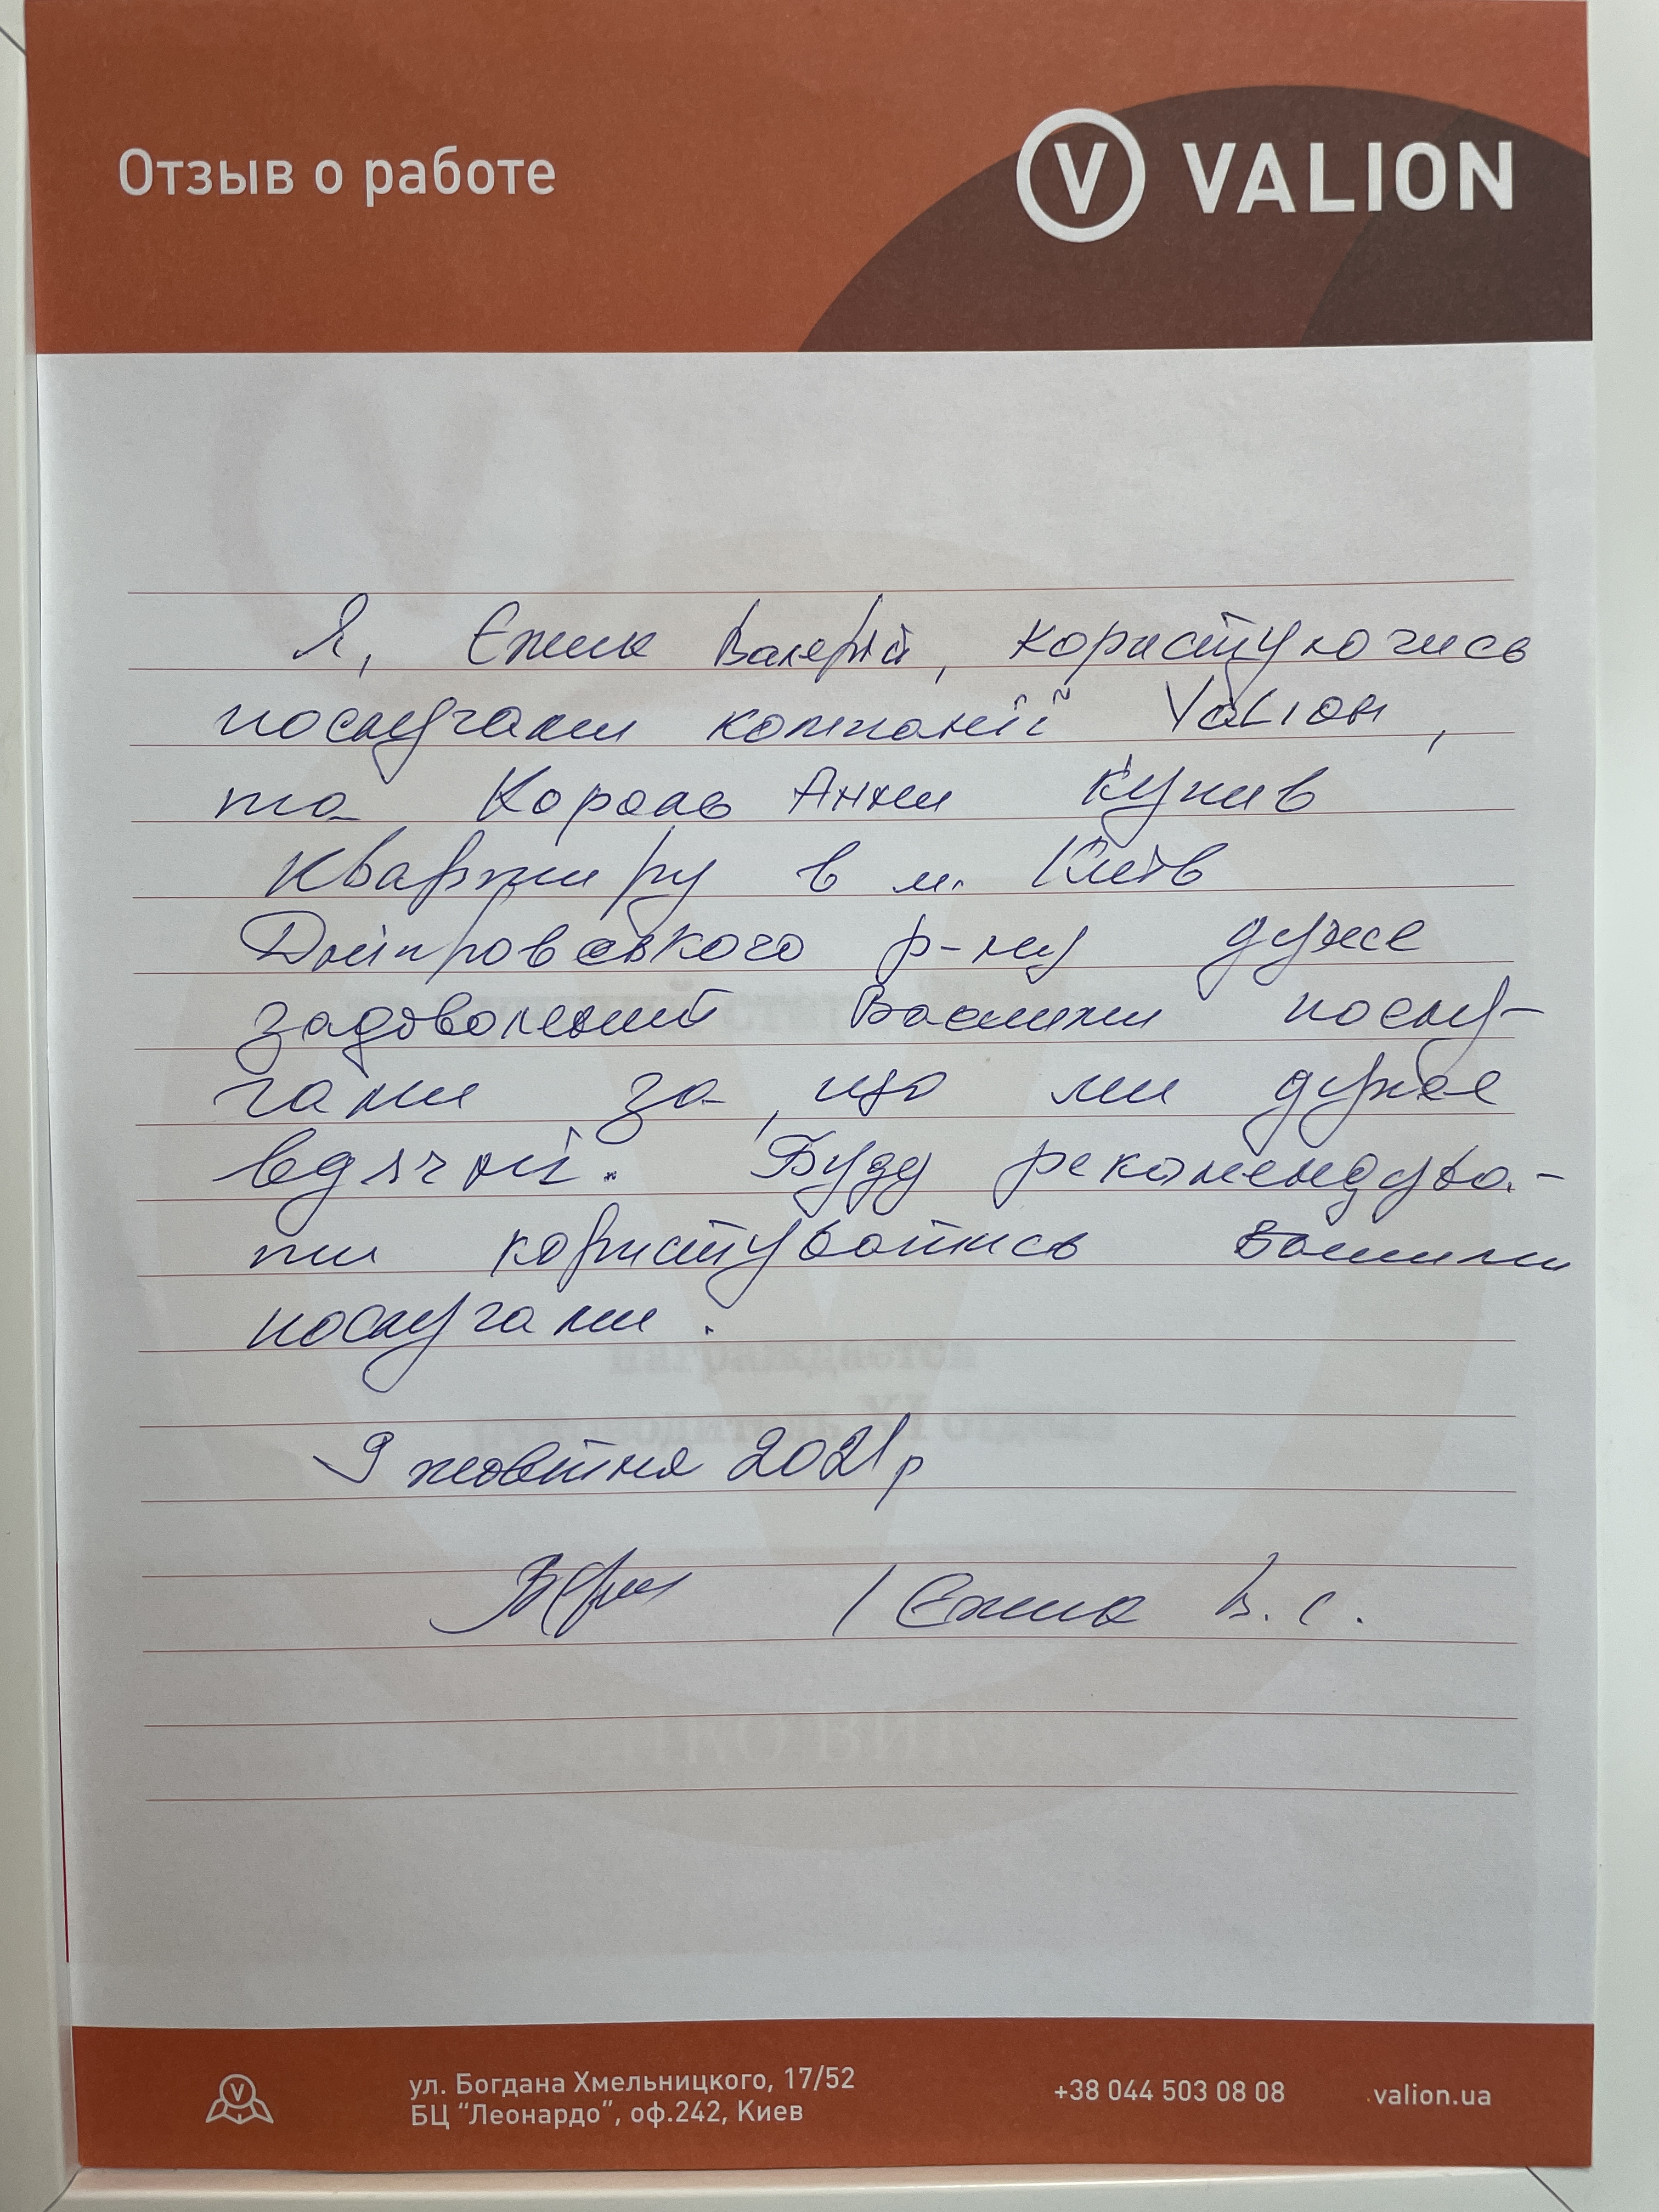 Отзыв о работе
V VALION
Я, Єжик Валерій, користуючись
послугами компанії Valion,
та Король Анни купив
квартиру в м. Київ
Дніпровського р-ну дуже
задоволений Вашими послу-
гами за, що ми дуже
вдячні. Буду рекомендува-
ти користуватись Вашими
послугами.
9 жовтня 2021р
/ Єжик В. С.
награждается
ул. Богдана Хмельницкого, 17/52
БЦ "Леонардо", оф.242, Киев
+38 044 503 08 08
valion.ua